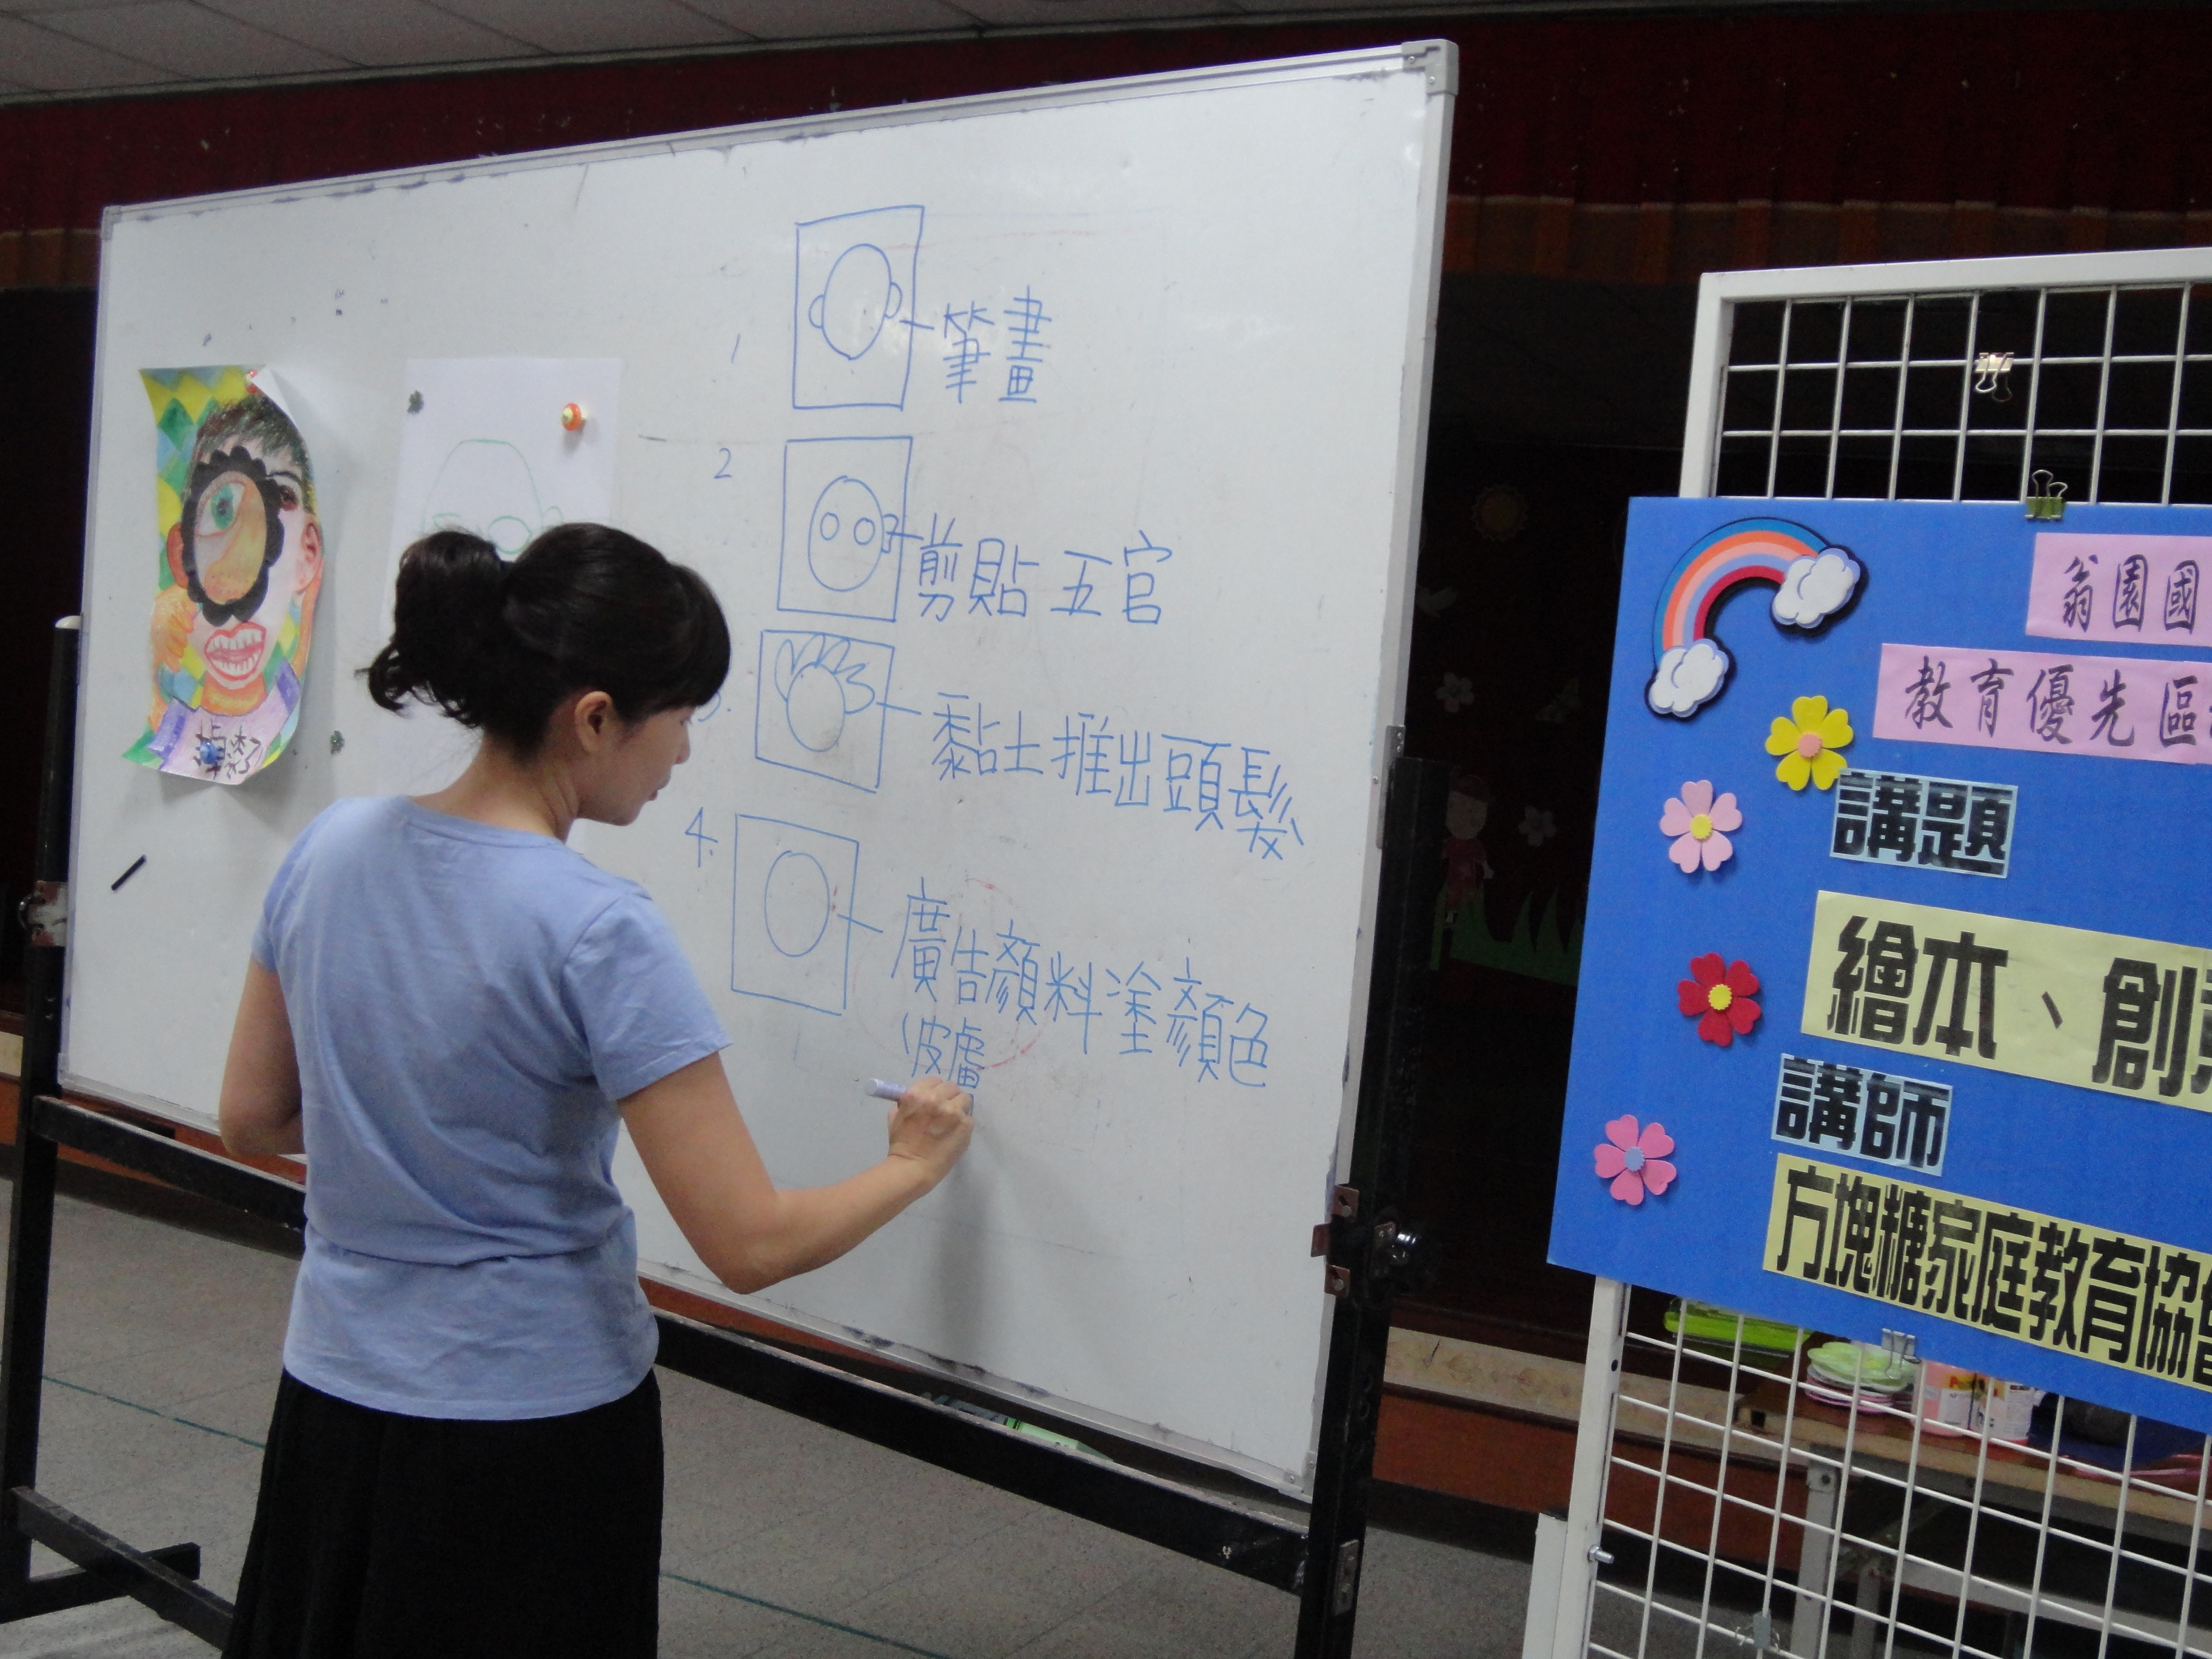 1
筆畫
2
剪貼五官
3.
黏土推出頭髮
4.
廣告顏料塗顏色
皮膚
翁園國
教育優先區
講題
繪本、創
講師
方塊糖家庭教育協